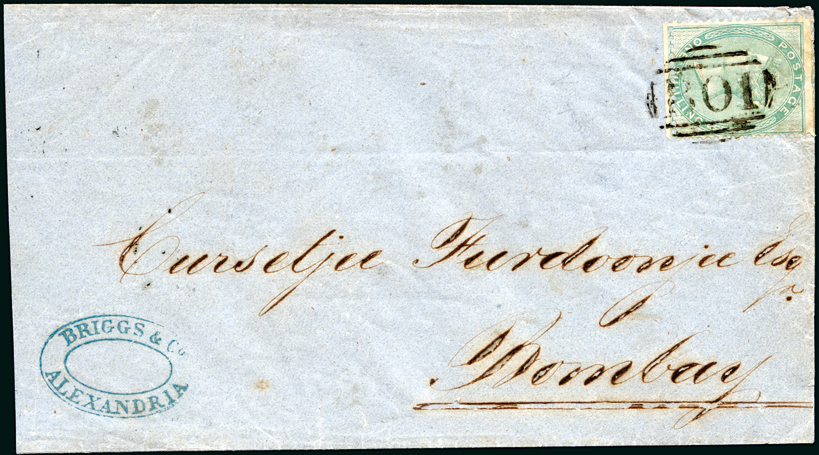 POSTAGE ONE SHILLING
B01
Cursetjee Furdoonjee Esqr
Bombay
BRIGGS & Co
ALEXANDRIA